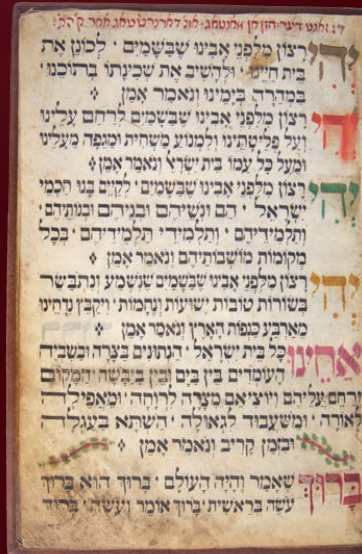 יְהִי רָצוֹן מִלִּפְנֵי אָבִינוּ שֶׁבַּשָּׁמַיִם · לְכוֹנֵן אֶת
בֵּית חַיֵּינוּ · וּלְהָשִׁיב אֶת שְׁכִינָתוֹ בְּתוֹכֵנוּ ·
בִּמְהֵרָה בְיָמֵינוּ וְנֹאמַר אָמֵן
יְהִי רָצוֹן מִלִּפְנֵי אָבִינוּ שֶׁבַּשָּׁמַיִם לְרַחֵם עָלֵינוּ
וְעַל פְּלֵיטָתֵינוּ וְלִמְנוֹעַ מַשְׁחִית וּמַגֵּפָה מֵעָלֵינוּ
וּמֵעַל כָּל עַמּוֹ בֵּית יִשְׂרָא׳ וְנֹאמַר אָמֵן
יְהִי רָצוֹן מִלִּפְנֵי אָבִינוּ שֶׁבַּשָּׁמַיִם · לְקַיֵּם בָּנוּ חַכְמֵי
יִשְׂרָאֵל · הֵם וּנְשֵׁיהֶם וּבְנֵיהֶם וּבְנוֹתֵיהֶם ·
וְתַלְמִידֵיהֶם · וְתַלְמִידֵי תַּלְמִידֵיהֶם · בְּכָל
מְקוֹמוֹת מוֹשְׁבוֹתֵיהֶם וְנֹאמַר אָמֵן
יְהִי רָצוֹן מִלִּפְנֵי אָבִינוּ שֶׁבַּשָּׁמַיִם שֶׁנִּשְׁמַע וְנִתְבַּשֵּׂר
בְּשׂוֹרוֹת טוֹבוֹת יְשׁוּעוֹת וְנֶחָמוֹת · וִיקַבֵּץ נִדָּחֵינוּ
מֵאַרְבַּע כַּנְפוֹת הָאָרֶץ וְנֹאמַר אָמֵן
אַחֵינוּ כָּל בֵּית יִשְׂרָאֵל · הַנְּתוּנִים בְּצָרָה וּבְשִׁבְיָה
הָעוֹמְדִים בֵּין בַּיָּם וּבֵין בַּיַּבָּשָׁה הַמָּקוֹם
יְרַחֵם עֲלֵיהֶם וְיוֹצִיאֵם מִצָּרָה לִרְוָחָה · וּמֵאֲפֵילָה
לְאוֹרָה · וּמִשִּׁעְבּוּד לִגְאוּלָּה · הַשְׁתָּא בַּעֲגָלָא
וּבִזְמַן קָרִיב וְנֹאמַר אָמֵן
בָּרוּךְ שֶׁאָמַר וְהָיָה הָעוֹלָם · בָּרוּךְ הוּא בָּרוּךְ
עֹשֶׂה בְרֵאשִׁית · בָּרוּךְ אוֹמֵר וְעֹשֶׂה · בָּרוּךְ